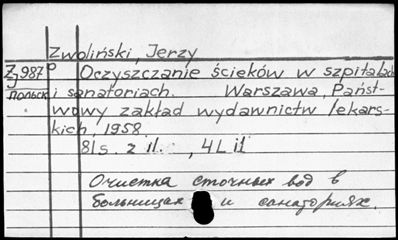 Zwoliński, Jerzy
Zj987 Oczyszczanie ścieków w szpitalach
польск i sanatoriach. Warszawa, Państ-
wowy zakład wydawnictw lekars-
kich, 1958.
81s. z il. , 4L il
Очистка сточных вод в
больницах и санаториях.